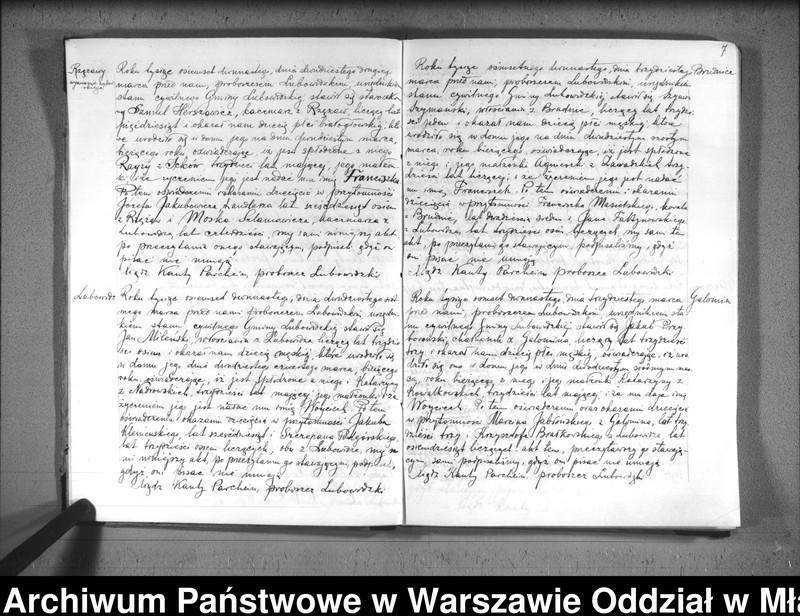 Rzęzawy
Roku tysiąc osiemset dwunastego, dnia dwudziestego drugiego
marca przed nami, proboszczem Lubowidzkim, urzędnikiem
stanu cywilnego Gminy Lubowidzkiej, stawił się starozakon-
ny Samuel Herszkowicz, kaczmarz z Rzęzaw, liczący lat
pięćdziesiąt i okazał nam dziecię płci białogłowskiej, któ-
re urodziło się w domu jego na dniu dwudziestym marca,
bieżącego roku oświadczając, iż jest spłodzone z niego
z Icków trzydzieści lat mającej, jego małżon-
ki, i że życzeniem jego jest nadać mu imię Franciszka
Po tem oświadczeniu i okazaniu dziecięcia w przytomności
Józefa Jakubowicza, handlarza lat sześćdziesiąt osiem
z Rzęzaw i Moska Salamowicza, kaczmarza z
Lubowidza, lat czterdzieści, my sami niniejszy akt
po przeczytaniu onego stawającym, podpisali gdyż oni
pisać nie umieją
Xiądz Kanty Parchem, proboszcz Lubowidzki
Lubowidz
Roku tysiąc osiemset dwunastego, dnia dwudziestego ósmego
marca przed nami proboszczem Lubowidzkim, urzędni-
kiem stanu cywilnego Gminy Lubowidzkiej stawił się
Jan Milewski, włościanin z Lubowidza liczący lat trzydzie-
ści osiem i okazał nam dziecię męskiej, które urodziło się
w domu jego dnia dwudziestego czwartego marca, bieżącego
roku, oświadczając, iż jest spłodzone z niego i Katarzyny
z Nadrowskich, trzydzieści lat mającej jego małżonki i że
życzeniem jego jest nadać mu imię Woyciech. Po tem
oświadczeniu i okazaniu dziecięcia w przytomności Jakuba
Kleniewskiego, lat sześćdziesiąt i Szczepana
lat trzydzieści osiem liczących, oba z Lubowidza, my sa-
mi niniejszy akt, po przeczytaniu go stawającym, podpisali,
gdyż oni pisać nie umieją
Xiądz Kanty Parchem, proboszcz Lubowidzki
7
Brudnice
Roku tysiąc osiemsetnego dwunastego, dnia trzydziestego
marca przed nami, proboszczem Lubowidzkim, urzędnikiem
stanu cywilnego Gminy Lubowidzkiej, stawił się Szymon
Szymański, włościanin z Brudnic, liczący lat trzydzie-
ści jeden i okazał nam dziecię płci męskiej, które
urodziło się w domu jego na dniu dwudziestym szóstym
marca, roku bieżącego, oświadczając, iż jest spłodzone
z niego i jego małżonki Agnieszki z Zawadzkich trzy-
dzieści lat liczącej i że życzeniem jego jest nadać
mu imię Franciszek. Po tem oświadczeniu i okazaniu
dziecięcia w przytomności Franciszka Masiełskiego, kowala
z Brudnic, lat dwadzieścia siedm i Jana Falszynowskiego
z Lubowidza, lat trzydzieści osim, liczących, my sam ten
akt, po przeczytaniu go stawającym, podpisaliśmy, gdyż
oni pisać nie umieją
Xiądz Kanty Parchem proboszcz Lubowidzki
Galomin
Roku tysiąc osiemset dwunastego, dnia trzydziestego marca
przed nami, proboszczem Lubowidzkim, urzędnikiem sta-
nu cywilnego Gminy Lubowidzkiej stawił się Jakób Przy-
borowski, chałupnik z Galomina, liczący lat trzydzieści
trzy i okazał nam dziecię płci męskiej, oświadczając, iż uro-
dziło się ono w domu jego w dniu dwudziestym siódmym mar-
ca, roku bieżącego z niego i jego małżonki Katarzyny z
Kowalkowskich, trzydzieści lat mającej, i że mu daje imię
Woyciech. Po tem oświadczeniu oraz okazaniu dziecięcia
w przytomności Marcina Jabłońskiego, z Galomina, lat trzy-
dzieści trzy i Krzysztofa Bratkowskiego z Lubowidza lat
osiemdziesiąt liczących akt ten, przeczytawszy go stawają-
cym, sami podpisaliśmy, gdyż oni pisać nie umieją
Xiądz Kanty Parchem, proboszcz Lubowidzki
Archiwum Państwowe w Warszawie Oddział w Mła